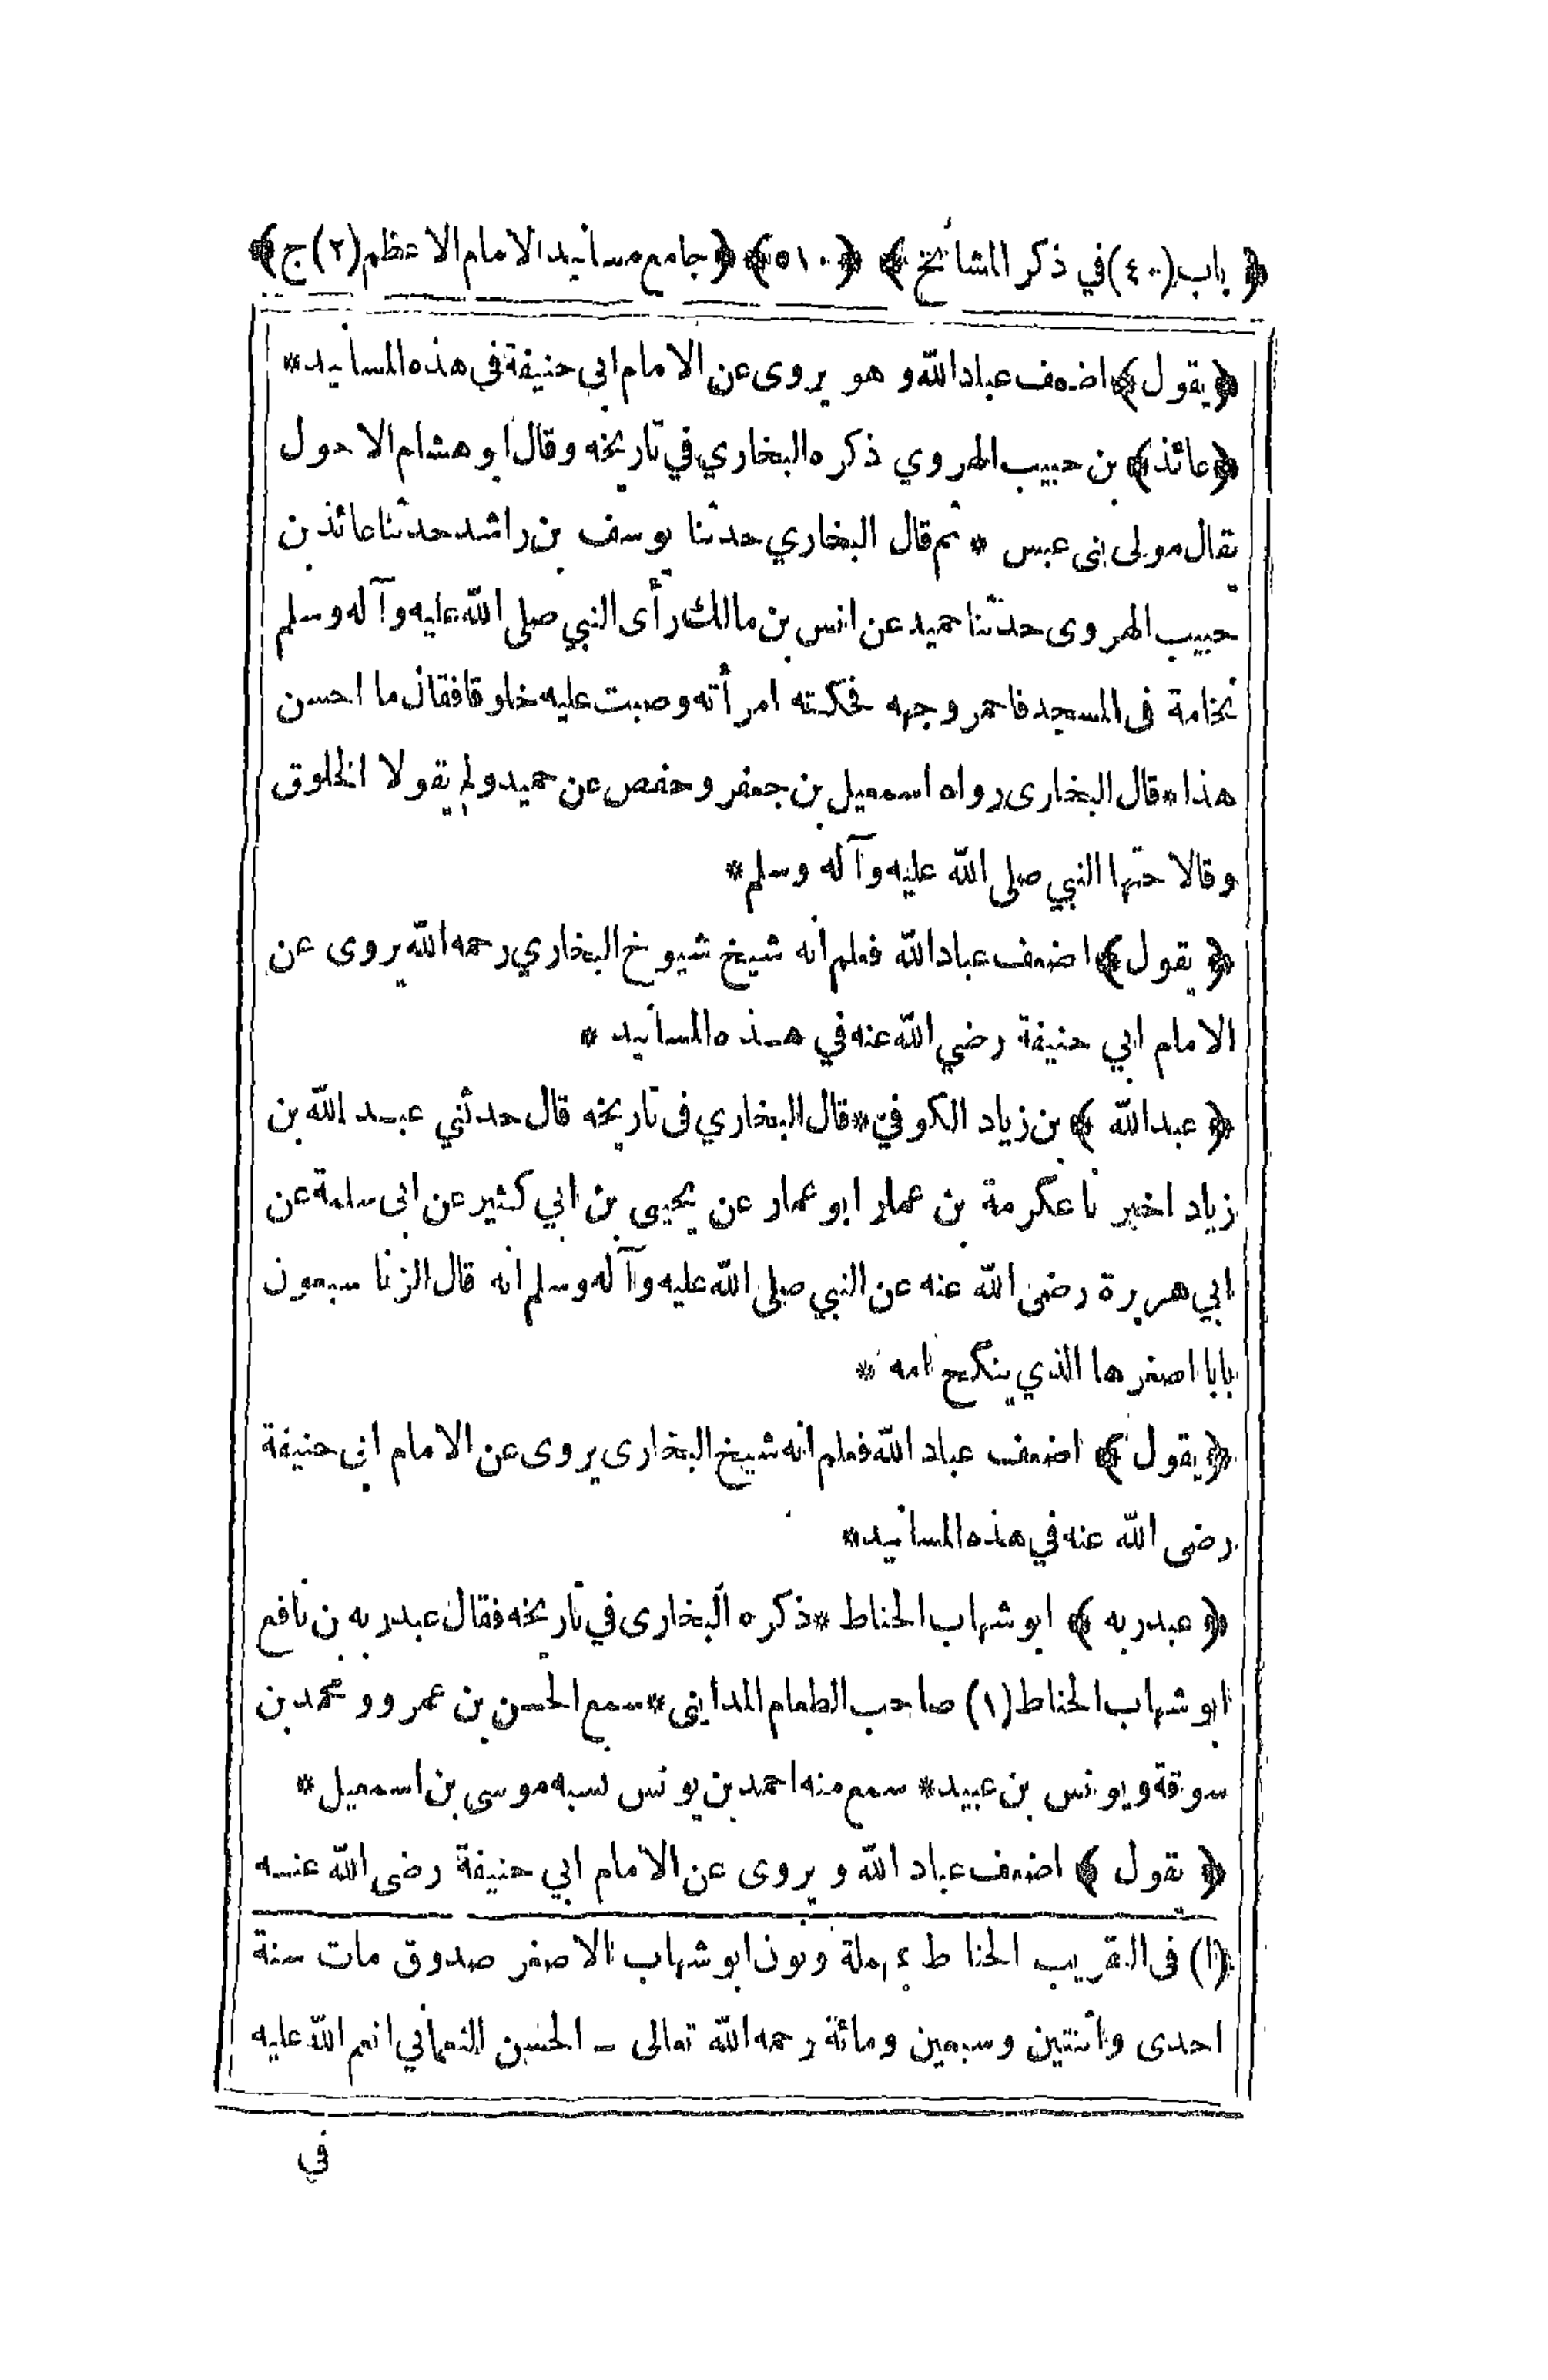 ﴿ باب (٤٠) في ذكر المشائخ ﴾ ﴿ ٥١٠ ﴾ ﴿ جامع مسانيد الامام الاعظم (٢) ج ﴾
﴿ يقول ﴾ اضعف عباد الله و هو يروى عن الامام ابي حنيفة في هذه المسانيد *
﴿ عائذ ﴾ بن حبيب الهروي ذكره البخاري في تاريخه وقال ابو هشام الاحول
يقال مولى بنى عبس * ثم قال البخاري حدثنا يوسف بن راشد حدثنا عائذ بن
حبيب الهروى حدثنا حميد عن انس بن مالك رأى النبي صلى الله عليه وآله وسلم
نخامة فى المسجد فاحمر وجهه فحكته امرأته وصبت عليه خلوقا فقال ما احسن
هذا * قال البخارى رواه اسمعيل بن جعفر وحفص عن حميد ولم يقولا الخلوق
وقالا حتها النبي صلى الله عليه وآله وسلم *
﴿ يقول ﴾ اضعف عباد الله فعلم انه شيخ شيوخ البخاري رحمه الله يروى عن
الامام ابي حنيفة رضي الله عنه في هذه المسانيد *
﴿ عبد الله ﴾ بن زياد الكوفي * قال البخاري فى تاريخه قال حدثني عبد الله بن
زياد اخبر نا عكرمة بن عمار ابو عمار عن يحيى بن ابي كثير عن ابى سلمة عن
ابي هريرة رضى الله عنه عن النبي صلى الله عليه وآله وسلم انه قال الزنا سبعون
بابا اصغرها الذي ينكح امه *
﴿ يقول ﴾ اضعف عباد الله فعلم انه شيخ البخارى يروى عن الامام ابى حنيفة
رضى الله عنه في هذه المسانيد *
﴿ عبدربه ﴾ ابو شهاب الحناط * ذكره البخارى في تاريخه فقال عبدربه بن نافع
ابو شهاب الحناط (١) صاحب الطعام المداينى * سمع الحسن بن عمرو و محمد بن
سوقة ويونس بن عبيد * سمع منه احمد بن يونس نسبه موسى بن اسمعيل *
﴿ يقول ﴾ اضعف عباد الله و يروى عن الامام ابي حنيفة رضى الله عنه
(١) فى التقريب الحناط بمهملة ونون ابو شهاب الاصغر صدوق مات سنة
احدى واثنتين وسبعين ومائة رحمه الله تعالى ــ الحسن النعماني انعم الله عليه
في